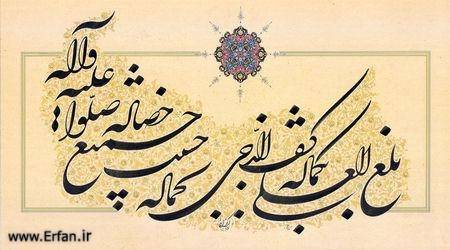 بلغ العلی بکماله کشف الدّجی بجماله حسنت جمیع خصاله صلّوا علیه وآله
www.Erfan.ir